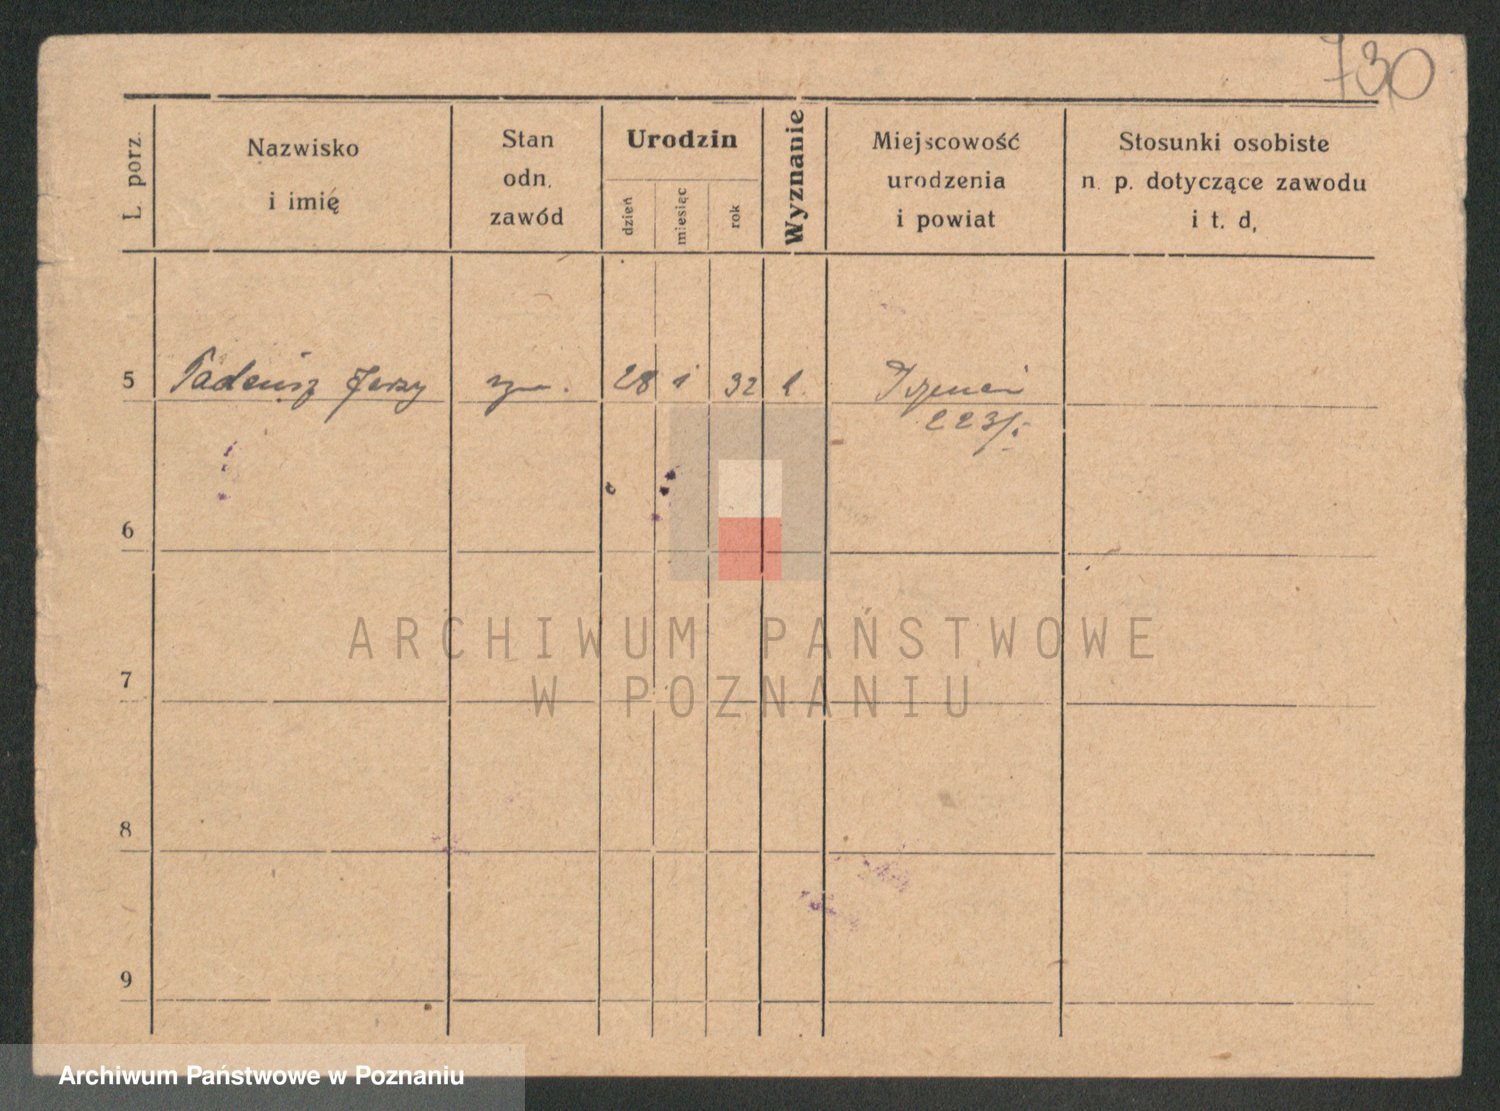 730
L. porz.
Nazwisko
i imię
Stan
odn.
zawód
Urodzin
dzień
miesiąc
rok
Wyznanie
Miejscowość
urodzenia
i powiat
Stosunki osobiste
n. p. dotyczące zawodu
i t. d.
5 Tadeusz Jerzy 28 1 32
223/
6
ARCHIWUM PAŃSTWOWE
W POZNANIU
7
8
9
Archiwum Państwowe w Poznaniu